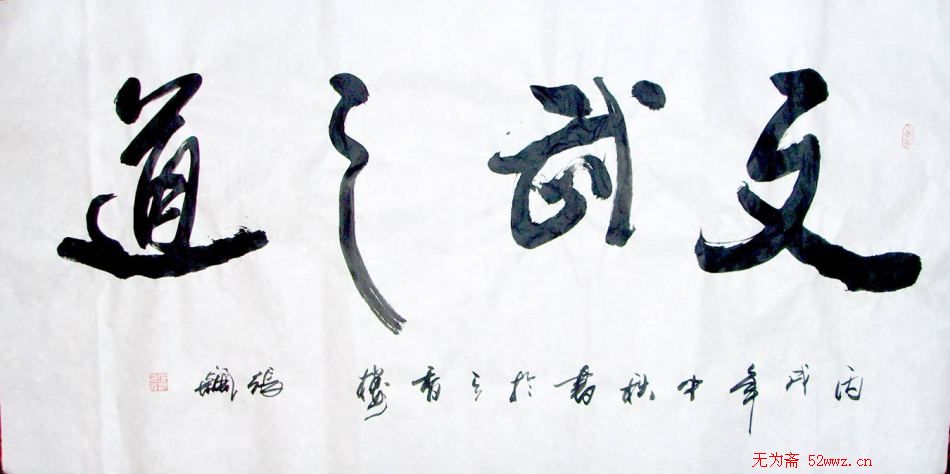 文武之道
丙戌年中秋书于三香楼 张
无为斋 52wwz.cn